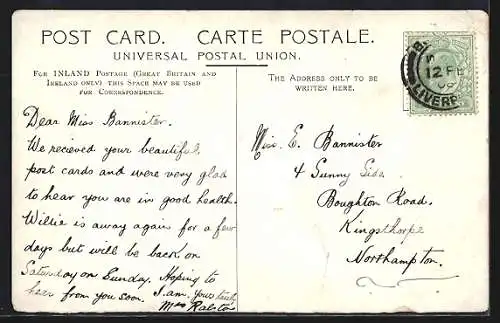 POST CARD. CARTE POSTALE.
UNIVERSAL POSTAL UNION.
FOR INLAND POSTAGE (GREAT BRITAIN AND
IRELAND ONLY) THIS SPACE MAY BE USED
FOR CORRESPONDENCE.
THE ADDRESS ONLY TO BE
WRITTEN HERE.
12 FE
LIVERP
Dear Miss Bannister.
We recieved your beautiful
post cards and were very glad
to hear you are in good health.
Willie is away again for a few
days but will be back on
Saturday or Sunday. Hoping to
hear from you soon. I am. Yours truly
Mrs Ralston
Miss. E. Bannister
4 Sunny Side.
Boughton Road.
Kingsthorpe
Northampton.